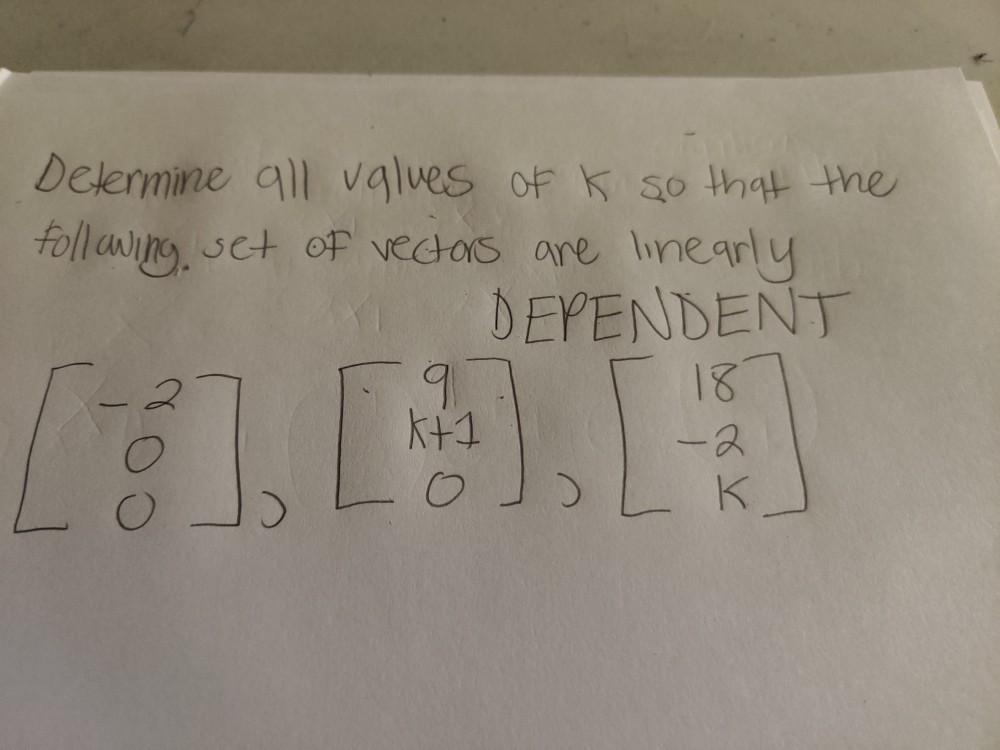 Determine all values of K so that the
following. set of vectors are linearly
DEPENDENT
[-2 0 0], [9 k+1 0], [18 -2 K]